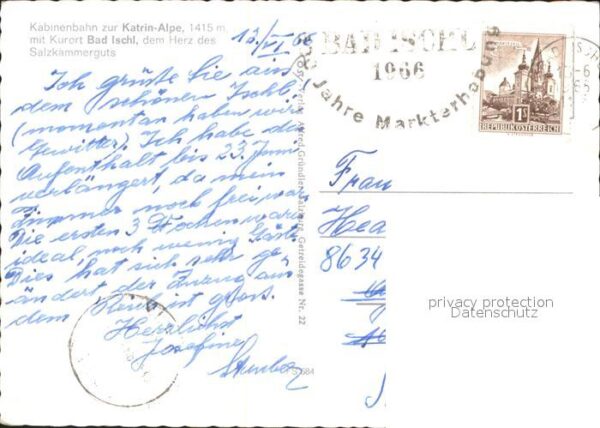 Kabinenbahn zur Katrin-Alpe, 1415 m,
mit Kurort Bad Ischl, dem Herz des
Salzkammerguts
12/VI 66
Ich grüße Sie aus
dem schönen Ischl,
(momentan haben wir
Gewitter). Ich habe den
Aufenthalt bis 23. Juni
verlängert, da mein
Zimmer noch frei war.
Die ersten 3 Wochen waren
ideal, noch wenig Gäste.
Dies hat sich sehr ge-
ändert der Zuzug aus
dem Reich ist groß.
Herzlichst
Josefine
BAD ISCHL
1966
Jahre Markterhebung
1S
REPUBLIK ÖSTERREICH
Verlag Alfred Gründler, Salzburg, Getreidegasse Nr. 22
Frau
Hea
8634
684
privacy protection
Datenschutz